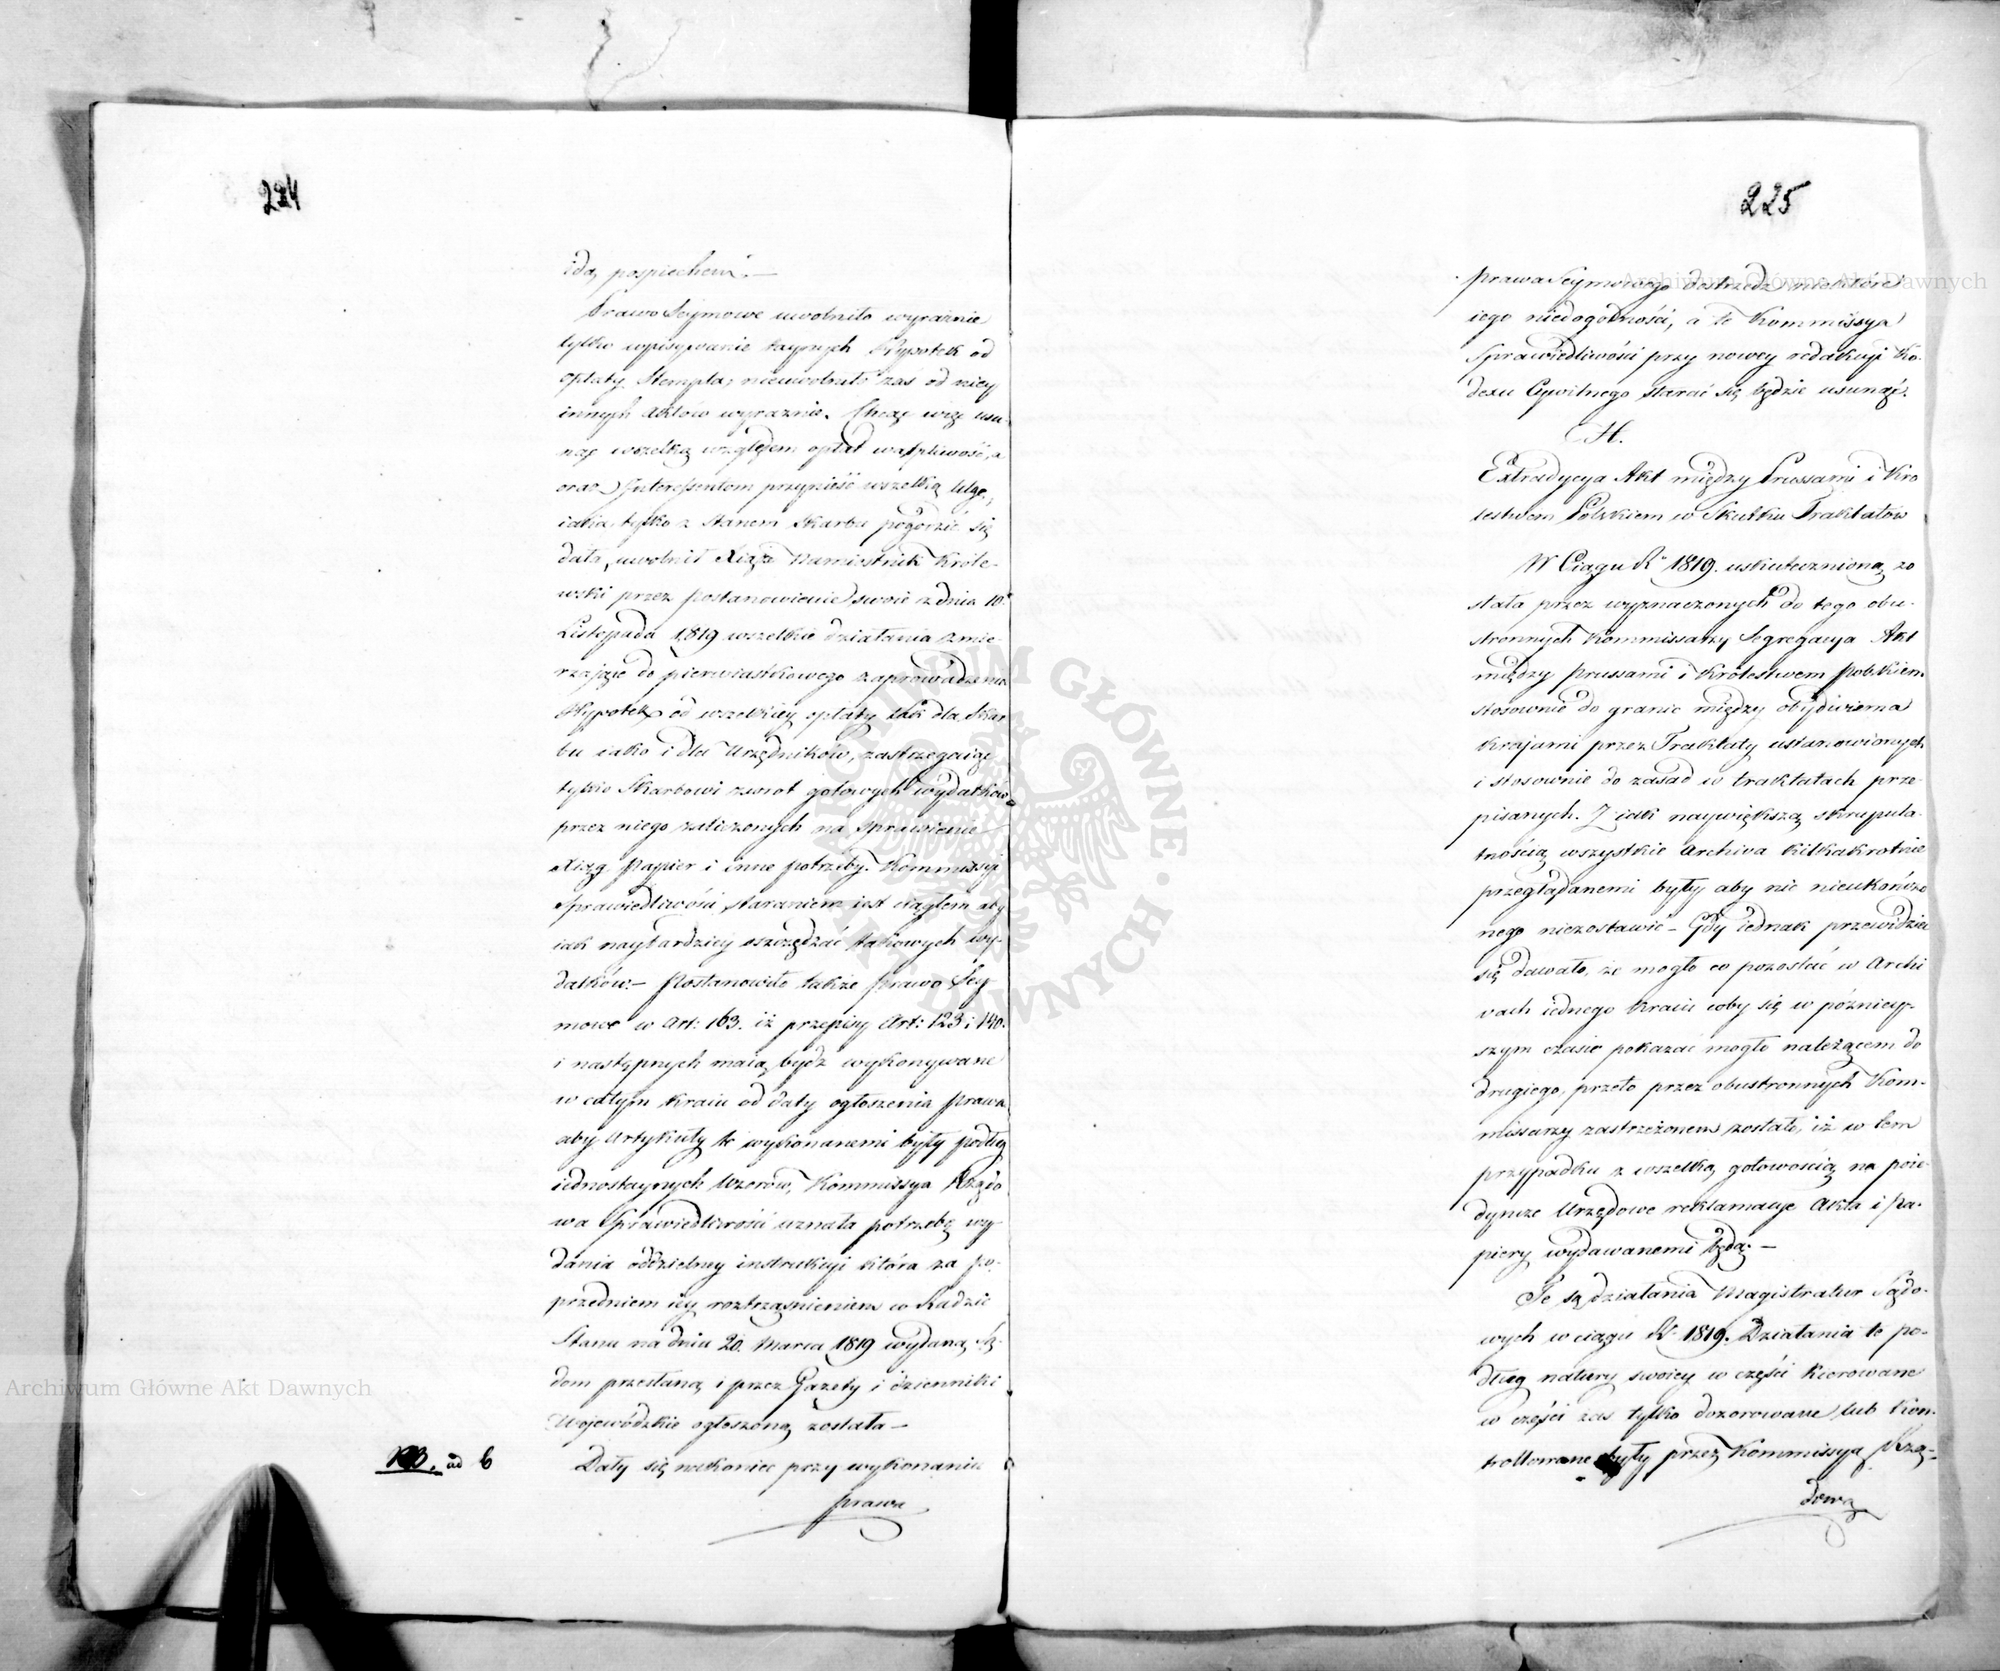 224
idą pospiechem. —
Prawo Seymowe uwolniło wyraźnie
tylko wpisywanie taynych Hypotek od
opłaty Stempla, nieuwolniło zaś od niey
innych aktów wyraźnie. Chcąc więc usu-
nąć wszelką względem opłat wątpliwość, a
oraz Interessentom przynieść wszelką ulgę,
iaka tylko z stanem Skarbu pogodzić się
dała, uwolnił Xiąże Namiestnik Króle-
wski przez postanowienie swoie z dnia 10.
Listopada 1819 wszelkie działania zmie-
rzające do pierwiastkowego zaprowadzenia
Hypotek od wszelkiey opłaty tak dla Skar
bu iako i dla Urzędników, zastrzegaiąc
tylko Skarbowi zwrot gotowych wydatków
przez niego zaliczonych na sprawienie
Xiąg Papier i inne potrzeby. Kommissyi
Sprawiedliwości staraniem iest ciągłem aby
iak naybardziey oszczędzać takowych wy-
datków. — Postanowiło także prawo Sey
mowe w Art: 163. iż przepisy Art: 123 i 140.
i następnych maią bydź wykonywane
w całym Kraiu od daty ogłoszenia prawa
aby Artykuły te wykonanemi były podług
iednostaynych Wzorów, Kommissya Rządo
wa Sprawiedliwości uznała potrzebę wy-
dania oddzielney instrukcyi która za po-
przedniem iey roztrząśnieniem w Radzie
Stanu na dniu 20. Marca 1819 wydaną Są-
dom przesłaną i przez Gazety i dzienniki
Wojewódzkie ogłoszoną została —
ad 6 Dały się nakoniec przy wykonaniu
prawa
225
prawa Seymowego dostrzedz niektóre
iego niedogodności, a te Kommissya
Sprawiedliwości przy nowey redakcyi Ko-
dexu Cywilnego starać się będzie usunąć.
H.
Extradycya Akt między Prussami i Kró
lestwem Polskiem w Skutku Traktatów
W Ciągu R. 1819. uskutecznioną zo
stała przez wyznaczonych do tego obu-
stronnych Kommissarzy Segregacya Akt
między Prussami i Królestwem Polskiem
stosownie do granic między obydwiema
Krajami przez Traktaty ustanowionych
i stosownie do zasad w traktatach prze-
pisanych. Z iak naywiększą skrupula-
tnością wszystkie Archiva kilkakrotnie
przeglądanemi były aby nic nieukończo
nego niezostawić — Gdy iednak przewidzieć
się dawało, że mogło co pozostać w Archi
vach iednego Kraiu coby się w późniey-
szym czasie pokazać mogło należącem do
drugiego, przeto przez obustronnych Kom-
missarzy zastrzeżonem zostało, iż w tem
przypadku z wszelką gotowością na poie-
dyncze Urzędowe reklamacye Akta i Pa-
piery wydawanemi będą. —
Te są działania Magistratur Sądo-
wych w ciągu R. 1819. Działania te po-
dług natury swoiey w części kierowane
w części zaś tylko dozorowane lub kon-
trollowane były przez Kommissyą Rzą-
dową
Archiwum Główne Akt Dawnych
Archiwum Główne Akt Dawnych
ARCHIWUM GŁÓWNE AKT DAWNYCH